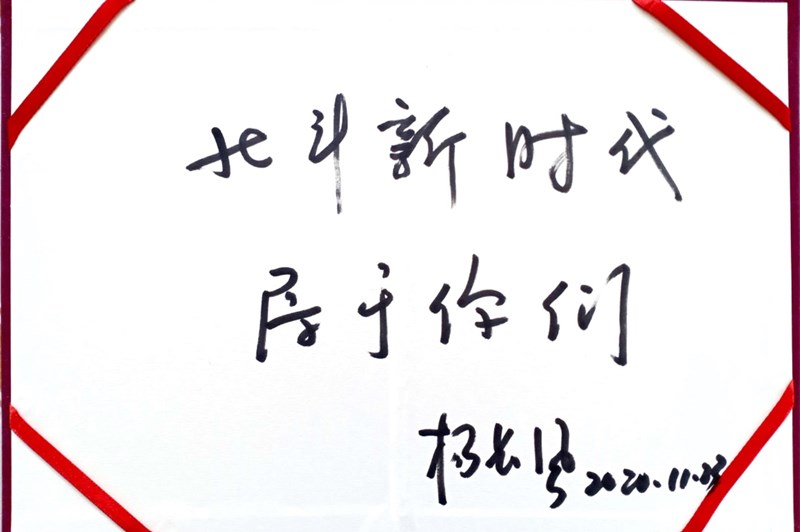 北斗新时代
属于你们
杨长风 2020.11.23